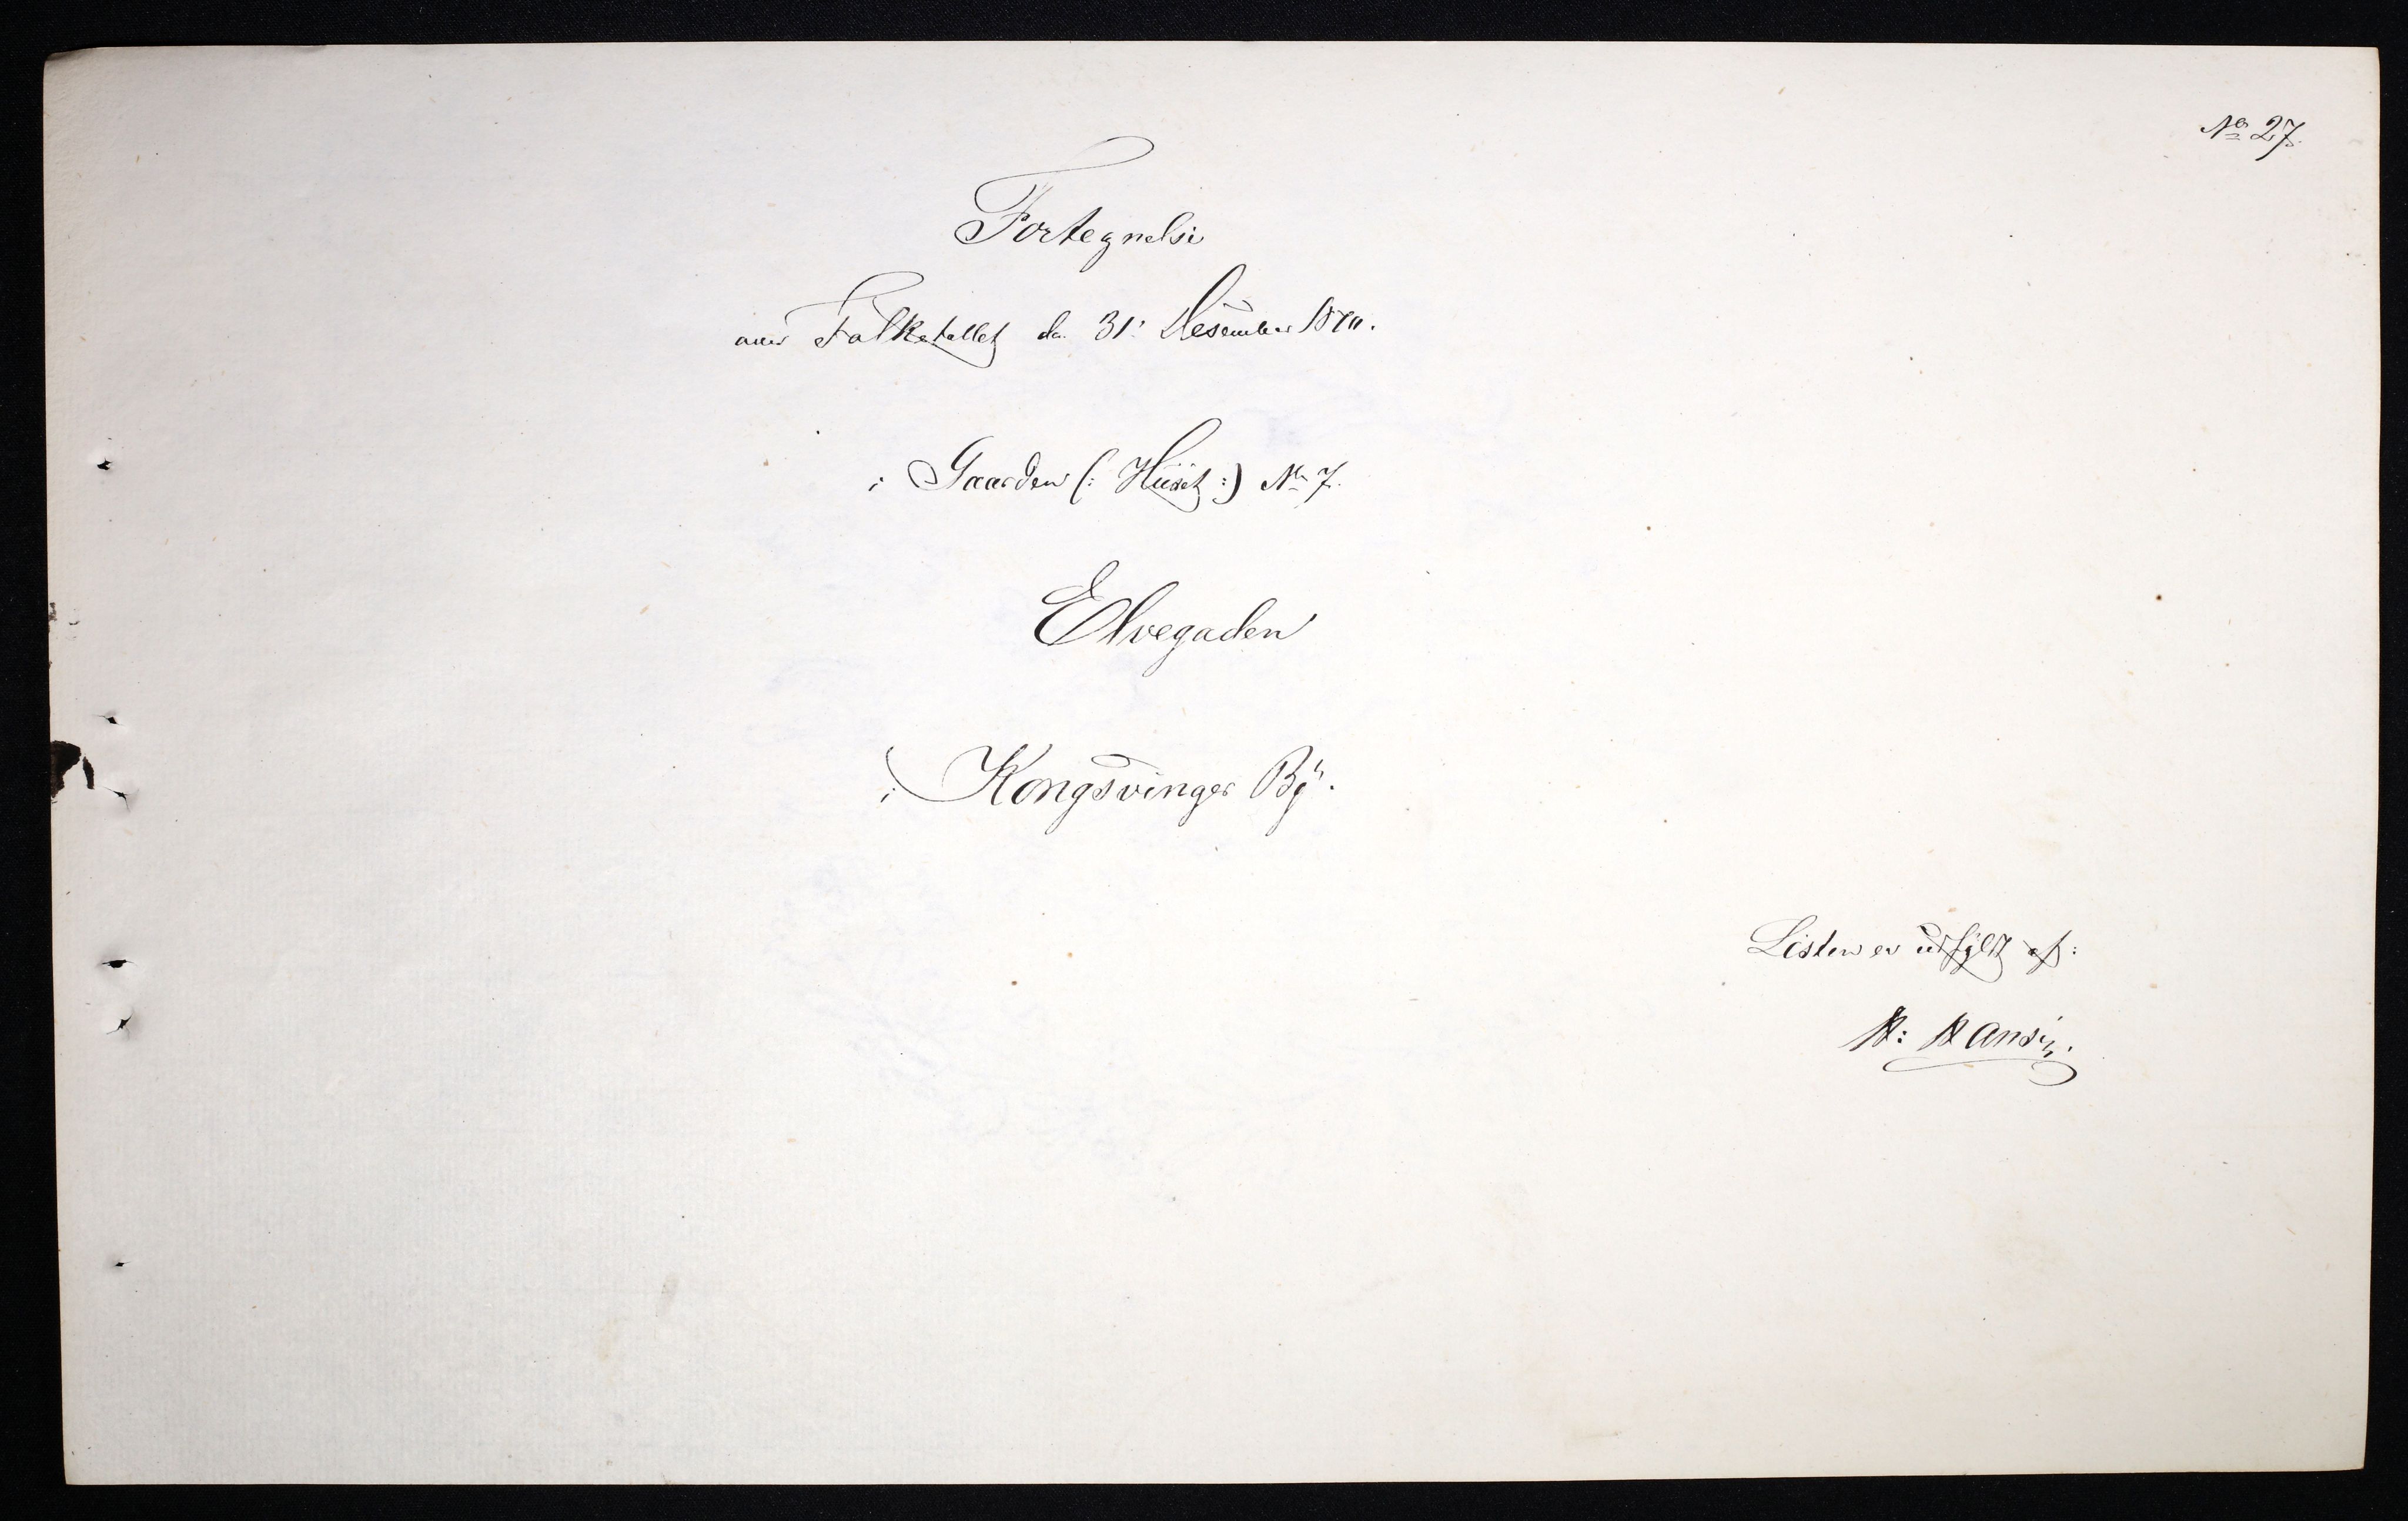 No 27.
Fortegnelse
over Folketallet den 31: Desember 1870.
i Gaarden (: Huset :) No 7.
Elvegaden
i Kongsvinger By.
Listen er udfyldt af:
H: Hansen.